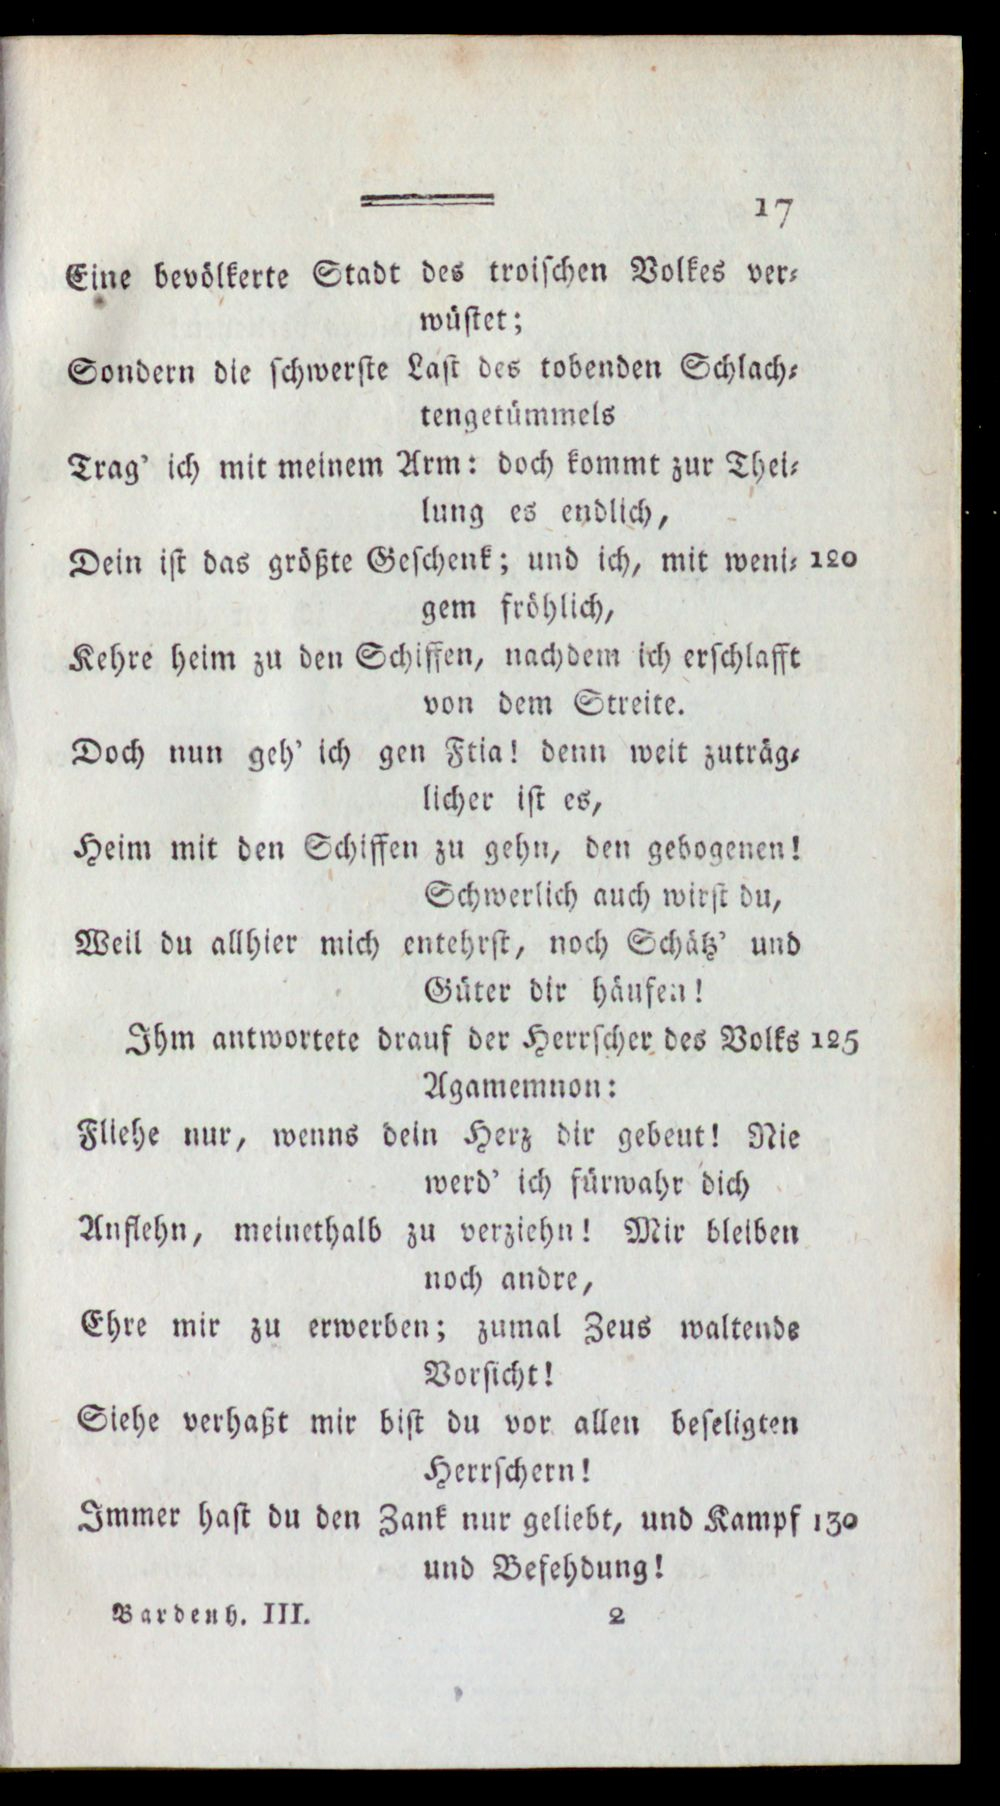 17
Eine bevölkerte Stadt des troischen Volkes ver-
wüstet;
Sondern die schwerste Last des tobenden Schlach-
tengetümmels
Trag' ich mit meinem Arm: doch kommt zur Thei-
lung es endlich,
Dein ist das größte Geschenk; und ich, mit weni- 120
gem fröhlich,
Kehre heim zu den Schiffen, nachdem ich erschlafft
von dem Streite.
Doch nun geh' ich gen Ftia! denn weit zuträg-
licher ist es,
Heim mit den Schiffen zu gehn, den gebogenen!
Schwerlich auch wirst du,
Weil du allhier mich entehrst, noch Schätz' und
Güter dir häufen!
Ihm antwortete drauf der Herrscher des Volks 125
Agamemnon:
Fliehe nur, wenns dein Herz dir gebeut! Nie
werd' ich fürwahr dich
Anflehn, meinethalb zu verziehn! Mir bleiben
noch andre,
Ehre mir zu erwerben; zumal Zeus waltende
Vorsicht!
Siehe verhaßt mir bist du vor allen beseligten
Herrschern!
Immer hast du den Zank nur geliebt, und Kampf 130
und Befehdung!
Bardenh. III. 2